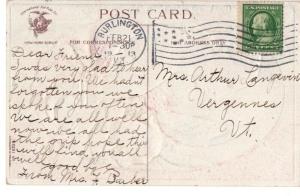 POST CARD.
BURLINGTON
FEB 21
VT.
FOR CORRESPONDENCE
FOR ADDRESS ONLY
U.S. POSTAGE
Dear Friend
I was very glad to hear
from you. We hadn't
forgotten you we
spoke of you often
we are all well
now we all had
the grip hope this
will find you all
well good bye
From Mrs Barber
Mrs. Arthur Langevin
Vergennes
Vt.